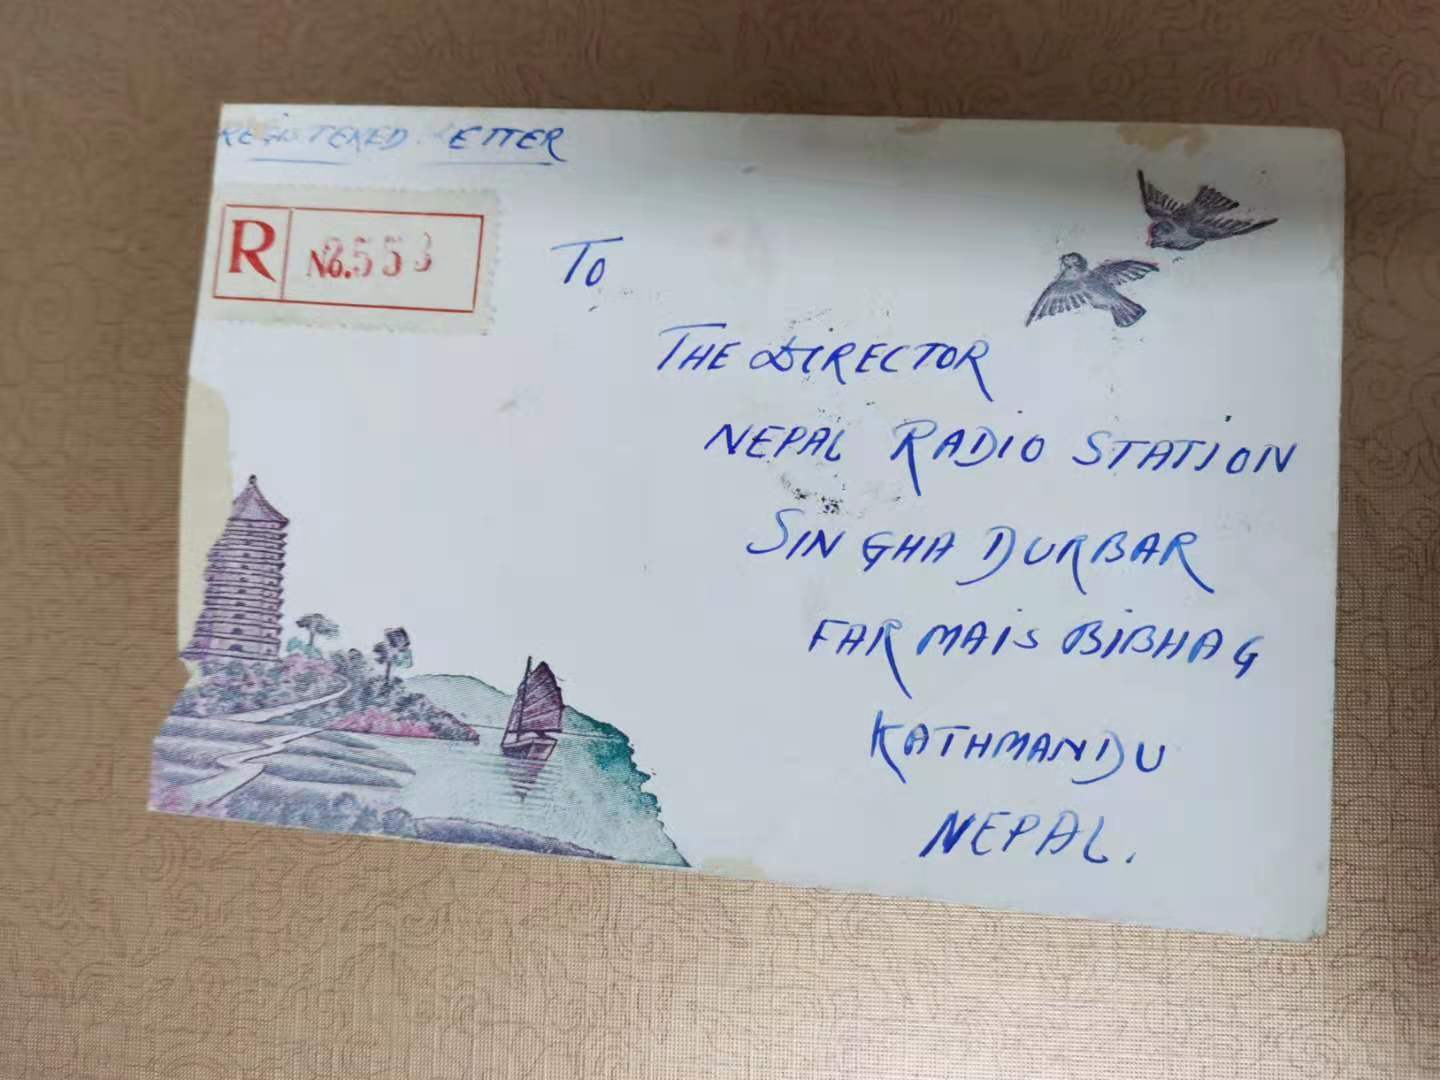 REGISTERED LETTER
R No.2553
To
THE DIRECTOR
NEPAL RADIO STATION
SINGHA DURBAR
FARMAIS BIBHAG
KATHMANDU
NEPAL.